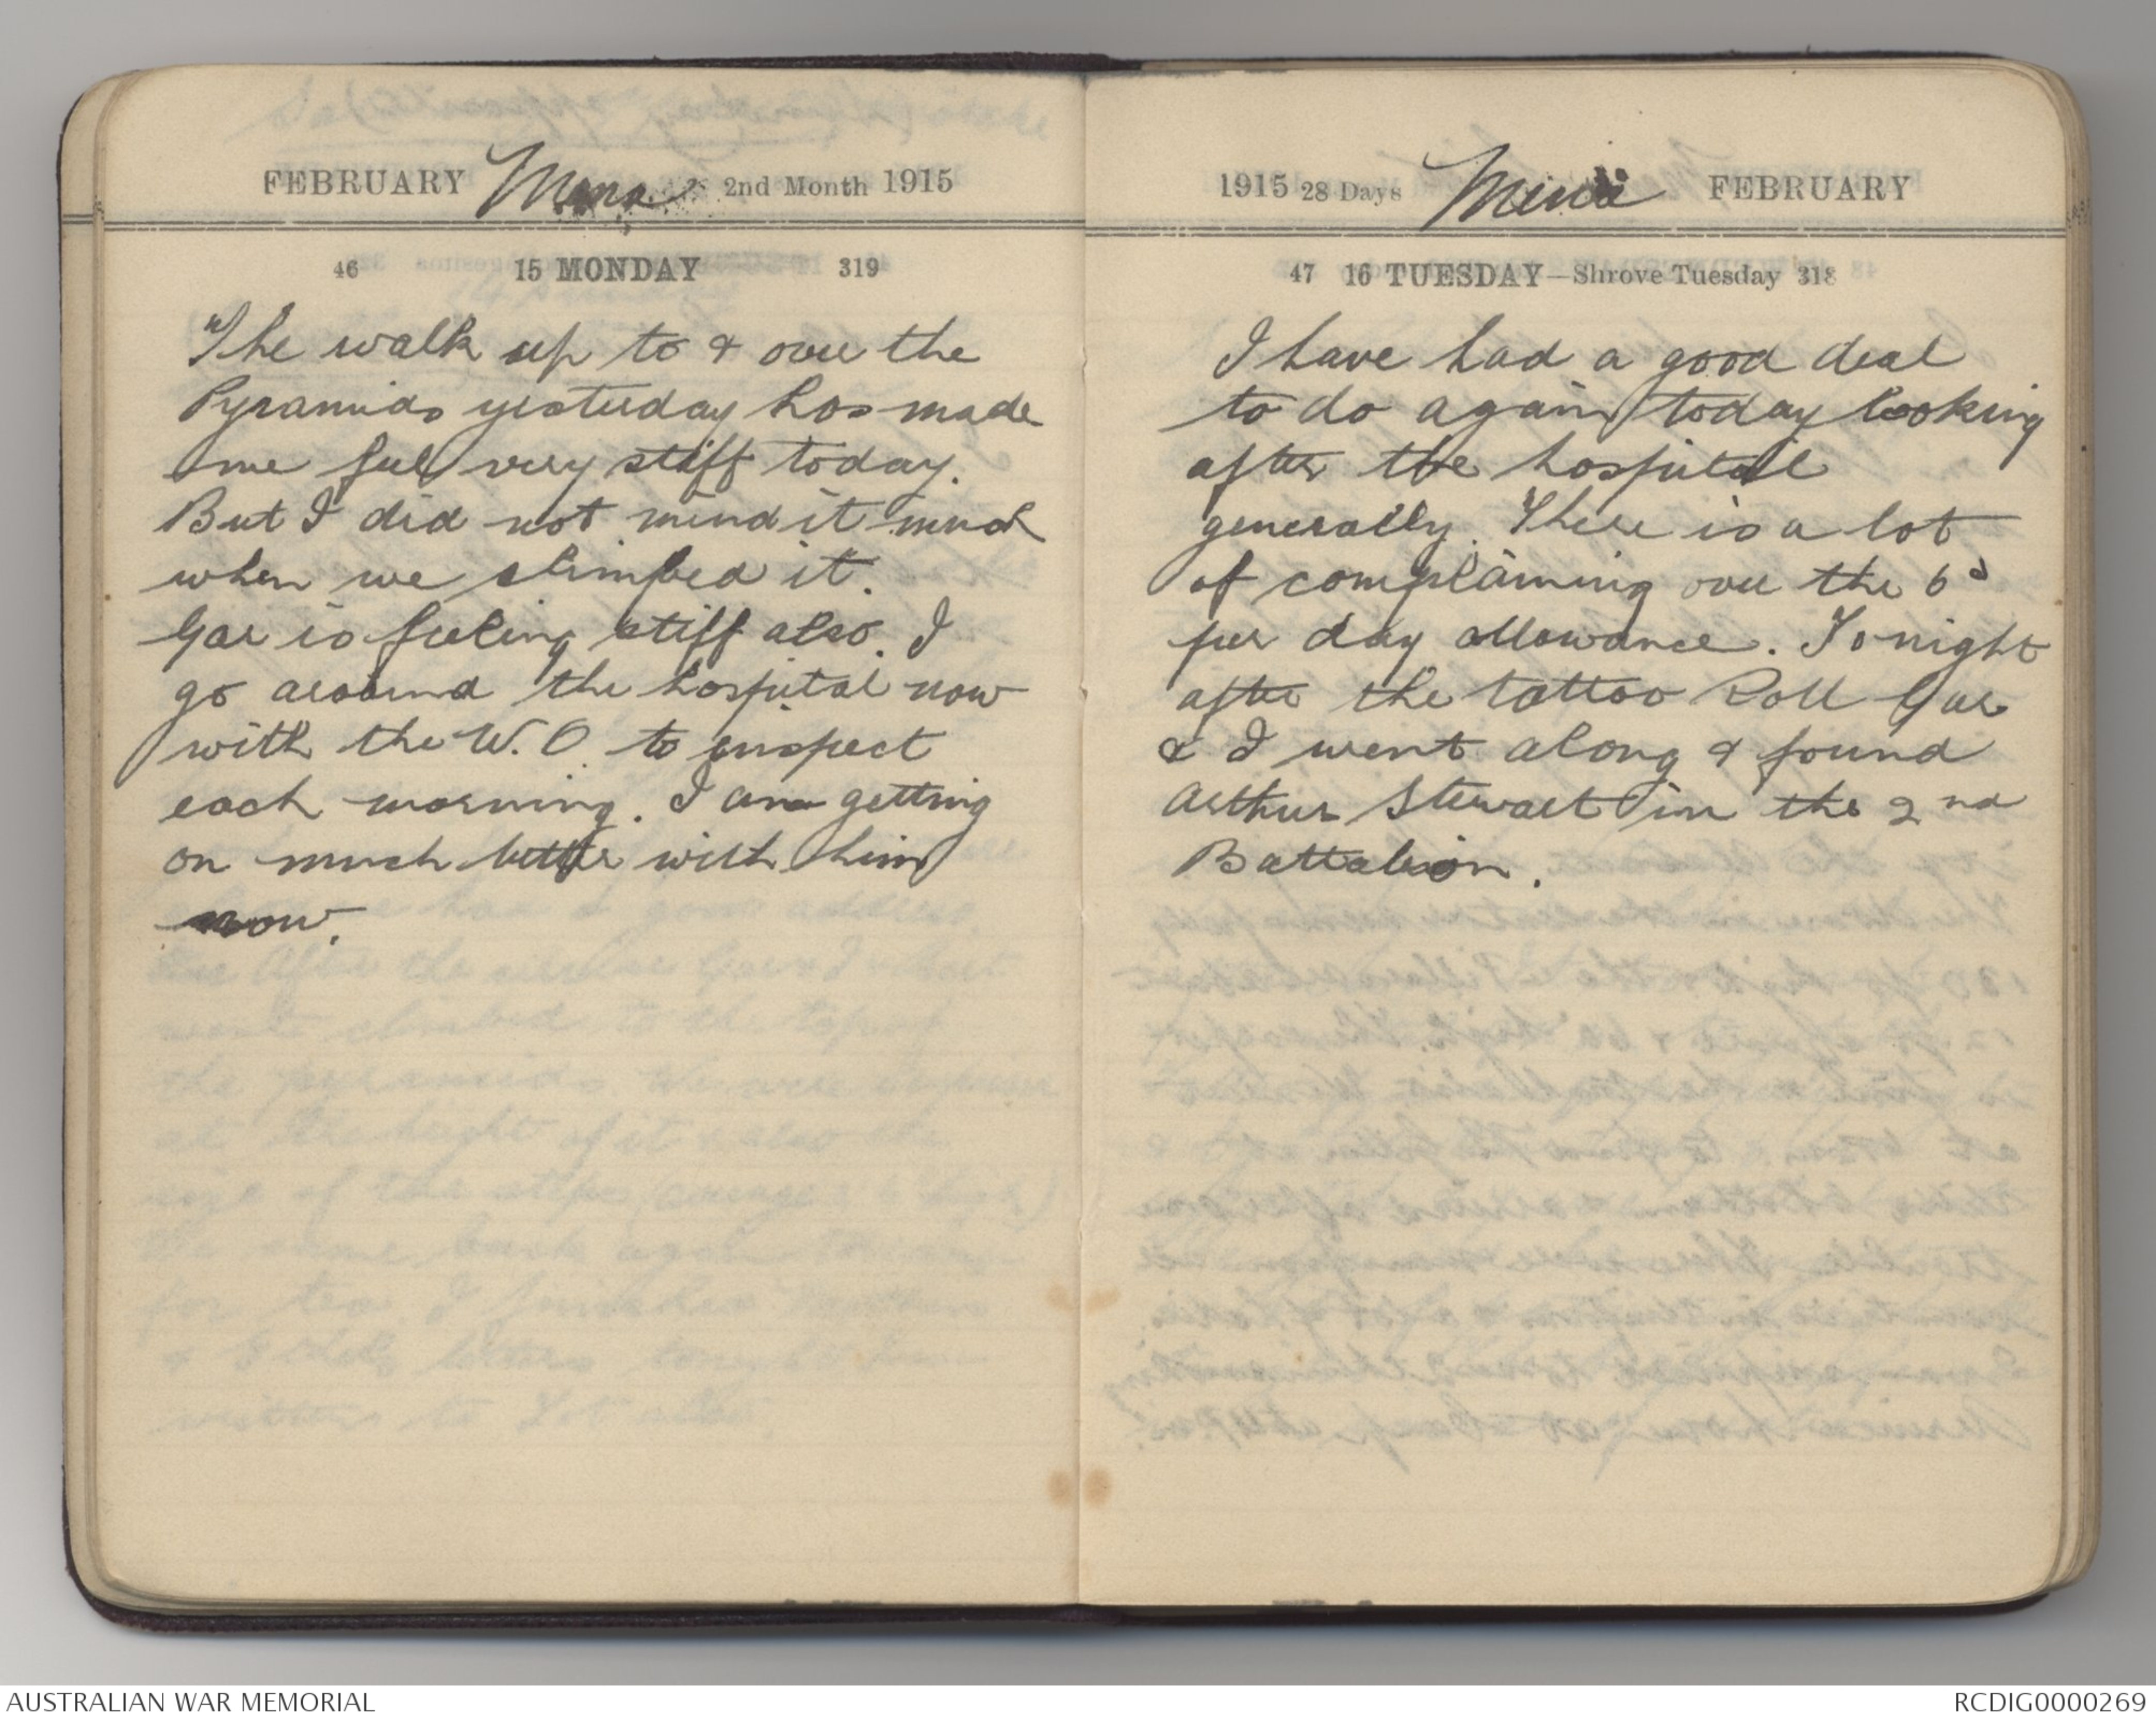 FEBRUARY Mena 2nd Month 1915
46 15 MONDAY 319
The walk up to & over the
Pyramids yesterday has made
me feel very stiff today.
But I did not mind it much
when we climbed it.
Gar is feeling stiff also. I
go around the hospital now
with the W.O. to inspect
each morning. I am getting
on much better with him
now.
1915 28 Days Mena FEBRUARY
47 16 TUESDAY—Shrove Tuesday 318
I have had a good deal
to do again today looking
after the hospital
generally. There is a lot
of complaining over the 6d
per day allowance. Tonight
after the tattoo Roll Gar
& I went along & found
Arthur Stewart in the 2nd
Battalion.
AUSTRALIAN WAR MEMORIAL
RCDIG0000269